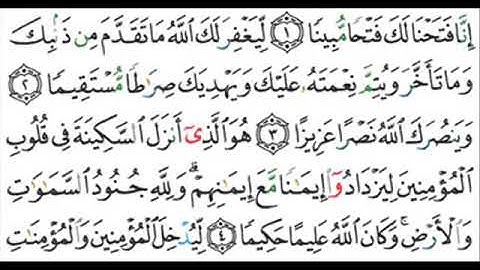 إِنَّا فَتَحْنَا لَكَ فَتْحًا مُّبِينًا ۝١ لِّيَغْفِرَ لَكَ ٱللَّهُ مَا تَقَدَّمَ مِن ذَنۢبِكَ
وَمَا تَأَخَّرَ وَيُتِمَّ نِعْمَتَهُۥ عَلَيْكَ وَيَهْدِيَكَ صِرَٰطًا مُّسْتَقِيمًا ۝٢
وَيَنصُرَكَ ٱللَّهُ نَصْرًا عَزِيزًا ۝٣ هُوَ ٱلَّذِىٓ أَنزَلَ ٱلسَّكِينَةَ فِى قُلُوبِ
ٱلْمُؤْمِنِينَ لِيَزْدَادُوٓا۟ إِيمَٰنًا مَّعَ إِيمَٰنِهِمْ ۗ وَلِلَّهِ جُنُودُ ٱلسَّمَٰوَٰتِ
وَٱلْأَرْضِ ۚ وَكَانَ ٱللَّهُ عَلِيمًا حَكِيمًا ۝٤ لِّيُدْخِلَ ٱلْمُؤْمِنِينَ وَٱلْمُؤْمِنَٰتِ